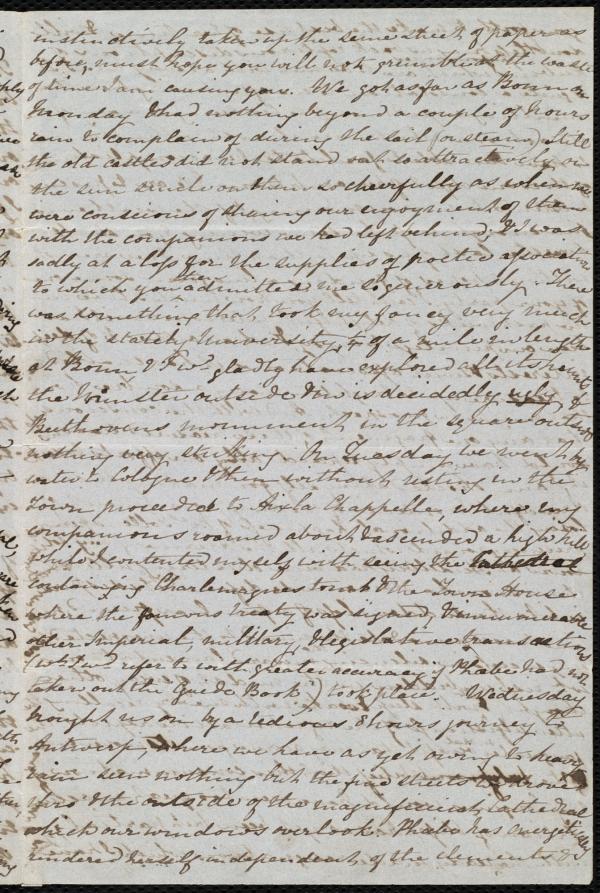 instinctively taken up the same sheet of paper as
before, must hope you will not grumble at the waste
of time I am causing you. We got as far as Bonn on
Monday & had nothing beyond a couple of hours
rain to complain of during the sail (or steam) Still
the old castles did not stand out so attractively or
the sun smile on them so cheerfully as when we
were conscious of sharing our enjoyment of them
with the companions we had left behind; & I was
sadly at a loss for the supplies of poetic association
to which you then admitted me so generously. There
was something that took my fancy very much
in the stately University, of a mile in length
at Bonn, & I wd. gladly have explored all its
the Minster outside too is decidedly ugly &
Beethovens monument in the square outside
nothing very striking. On Tuesday we went by
water to Cologne & then without resting in the
Town proceeded to Aix la Chappelle, where my
companions roamed about & ascended a high hill
while I contented myself with seeing the Cathedral
containing Charlemagnes tomb & the Town House
where the famous treaty was signed, & innumerable
other Imperial, military, & legislative transactions
(wh I wd refer to with greater accuracy if Phabe had not
taken out the Guide Book) took place. Wednesday
brought us on by a tedious 8 hours journey to
Antwerp, where we have as yet owing to heavy
rain seen nothing but the fine streets we drove
thro' & the outside of the magnificent Cathedral
which our windows overlook. Phabe has energetically
rendered herself independent of the elements &